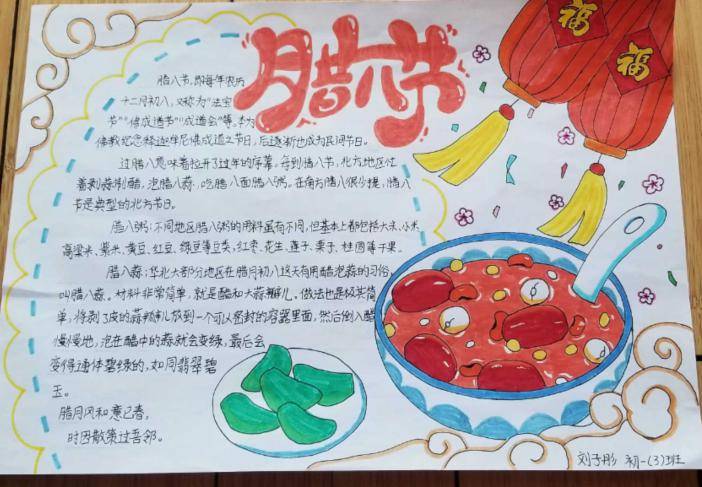 腊八节
福
福
腊八节,即每年农历
十二月初八,又称为“法宝
节”“佛成道节”“成道会”等。本为
佛教纪念释迦牟尼佛成道之节日,后逐渐也成为民间节日。
过腊八意味着拉开了过年的序幕。每到腊八节,北方地区忙
着剥蒜制醋,泡腊八蒜,吃腊八面腊八粥。在南方腊八很少提,腊八
节是典型的北方节日。
腊八粥:不同地区腊八粥的用料虽有不同,但基本上都包括大米、小米
高梁米、紫米、黄豆、红豆、绿豆等豆类,红枣、花生、莲子、栗子、桂圆等干果。
腊八蒜:华北大部分地区在腊月初八这天有用醋泡蒜的习俗,
叫腊八蒜。材料非常简单,就是醋和大蒜瓣儿。做法也是极其简
单,将剥了皮的蒜瓣儿放到一个可以密封的容器里面,然后倒入醋
慢慢地,泡在醋中的蒜就会变绿,最后会
变得通体碧绿的,如同翡翠碧
玉。
腊月风和意已春,
时因散策过吾邻。
刘子彤 初一(3)班